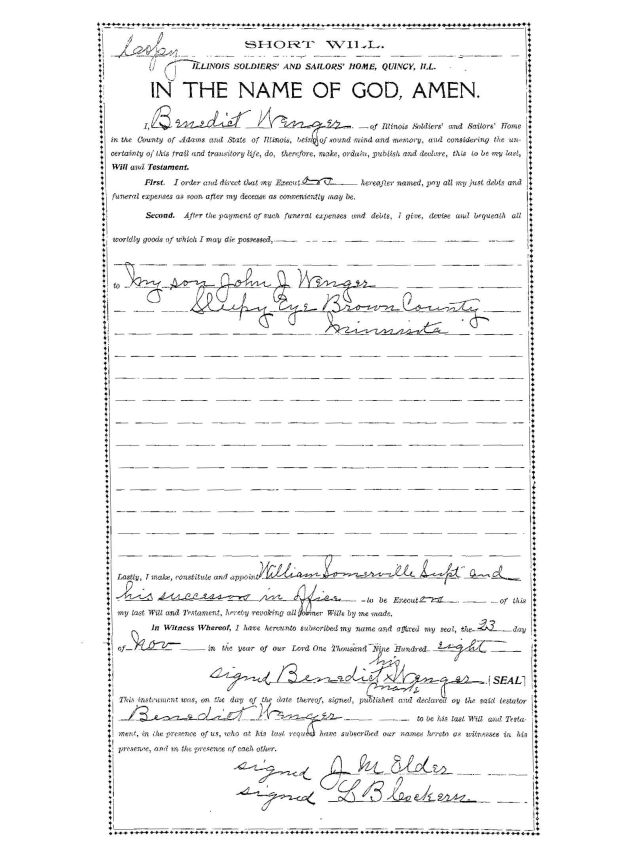 Copy
SHORT WILL.
ILLINOIS SOLDIERS' AND SAILORS' HOME, QUINCY, ILL.
IN THE NAME OF GOD, AMEN.
I, Benedict Wenger of Illinois Soldiers' and Sailors' Home
in the County of Adams and State of Illinois, being of sound mind and memory, and considering the un-
certainty of this frail and transitory life, do, therefore, make, ordain, publish and declare, this to be my last,
Will and Testament.
First. I order and direct that my Executors hereafter named, pay all my just debts and
funeral expenses as soon after my decease as conveniently may be.
Second. After the payment of such funeral expenses and debts, I give, devise and bequeath all
worldly goods of which I may die possessed,
to my son John J Wenger
Sleepy Eye Brown County
Minnisota
Lastly, I make, constitute and appoint William Somerville Supt and
his successors in office to be Executors of this
my last Will and Testament, hereby revoking all former Wills by me made.
In Witness Whereof, I have hereunto subscribed my name and affixed my seal, the 23 day
of Nov in the year of our Lord One Thousand Nine Hundred eight
his
signd Benedict x Wenger [SEAL]
mark
This instrument was, on the day of the date thereof, signed, published and declared by the said testator
Benedict Wenger to be his last Will and Testa-
ment, in the presence of us, who at his last request have subscribed our names hereto as witnesses in his
presence, and in the presence of each other.
signed J M Elder
signed L B